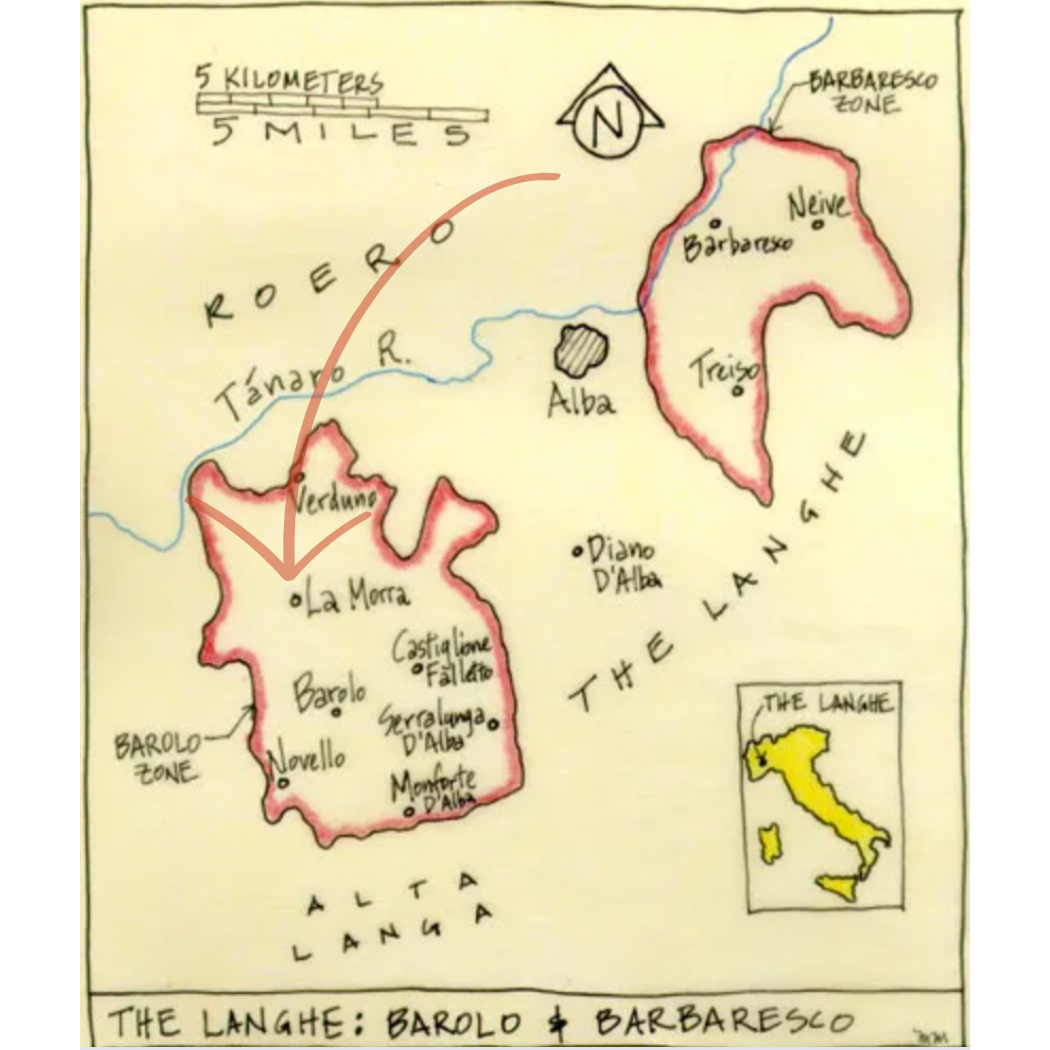 5 KILOMETERS
5 MILES
N
BARBARESCO
ZONE
ROERO
Neive
Barbaresco
Tánaro R.
Alba
Treiso
Verduno
Diano
D'Alba
THE LANGHE
La Morra
Castiglione
Falletto
Barolo
Serralunga
D'Alba
BAROLO
ZONE
Novello
Monforte
D'Alba
THE LANGHE
ALTA
LANGA
THE LANGHE: BAROLO & BARBARESCO